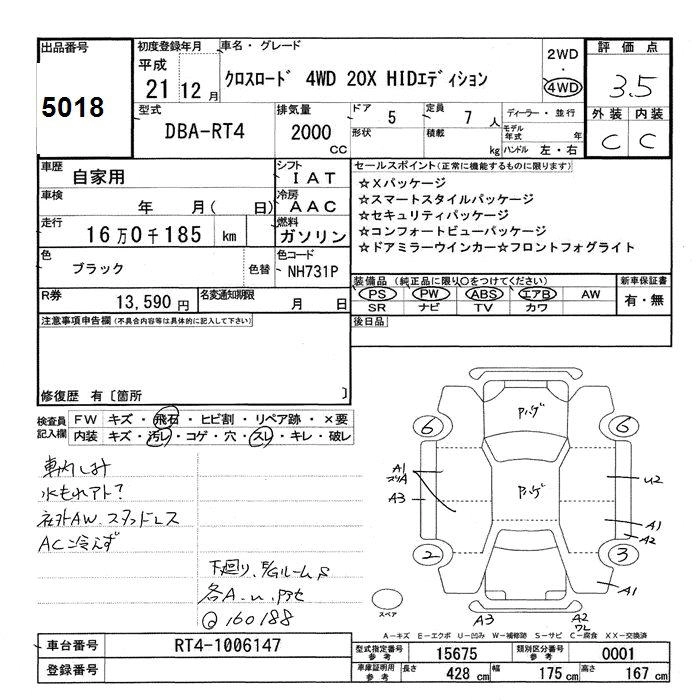 出品番号
5018
初度登録年月
平成
21 12 月
車名・グレード
クロスロード 4WD 20X HIDエディション
2WD
・
4WD
評価点
3.5
外装 内装
C C
型式
DBA-RT4
排気量
2000
CC
ドア 5
形状
定員 7 人
積載 kg
ディーラー・並行
モデル年式 年
ハンドル 左・右
車歴
自家用
シフト
IAT
車検
年 月( 日)
冷房
AAC
走行
16万0千185 km
燃料
ガソリン
色
ブラック
色替
色コード
NH731P
R券
13,590 円
名変通知期限
月 日
セールスポイント(正常に機能するものに限ります)
☆Xパッケージ
☆スマートスタイルパッケージ
☆セキュリティパッケージ
☆コンフォートビューパッケージ
☆ドアミラーウインカー☆フロントフォグライト
装備品 (純正品に限り○をつけてください)
PS PW ABS エアB AW
SR ナビ TV カワ
新車保証書
有・無
後日品
注意事項申告欄(不具合内容等は具体的に記入して下さい)
修復歴 有〔箇所 〕
検査員記入欄
FW キズ・飛石・ヒビ割・リペア跡・×要
内装 キズ・汚レ・コゲ・穴・スレ・キレ・破レ
車内しみ
水もれアト?
社外AW.スタッドレス
AC冷えず
下廻り、E/Gルームサ
各A.u.
Q 160188
6
6
2
3
ハゲ
ハゲ
A1
A3
U2
A1
A2
A1
A3
A2
スペア
A-キズ E-エクボ U-凹み W-補修跡 S-サビ C-腐食 XX-交換済
車台番号
RT4-1006147
登録番号
型式指定番号 参考
15675
類別区分番号 参考
0001
車庫証明用 参考
長さ 428 cm
幅 175 cm
高さ 167 cm